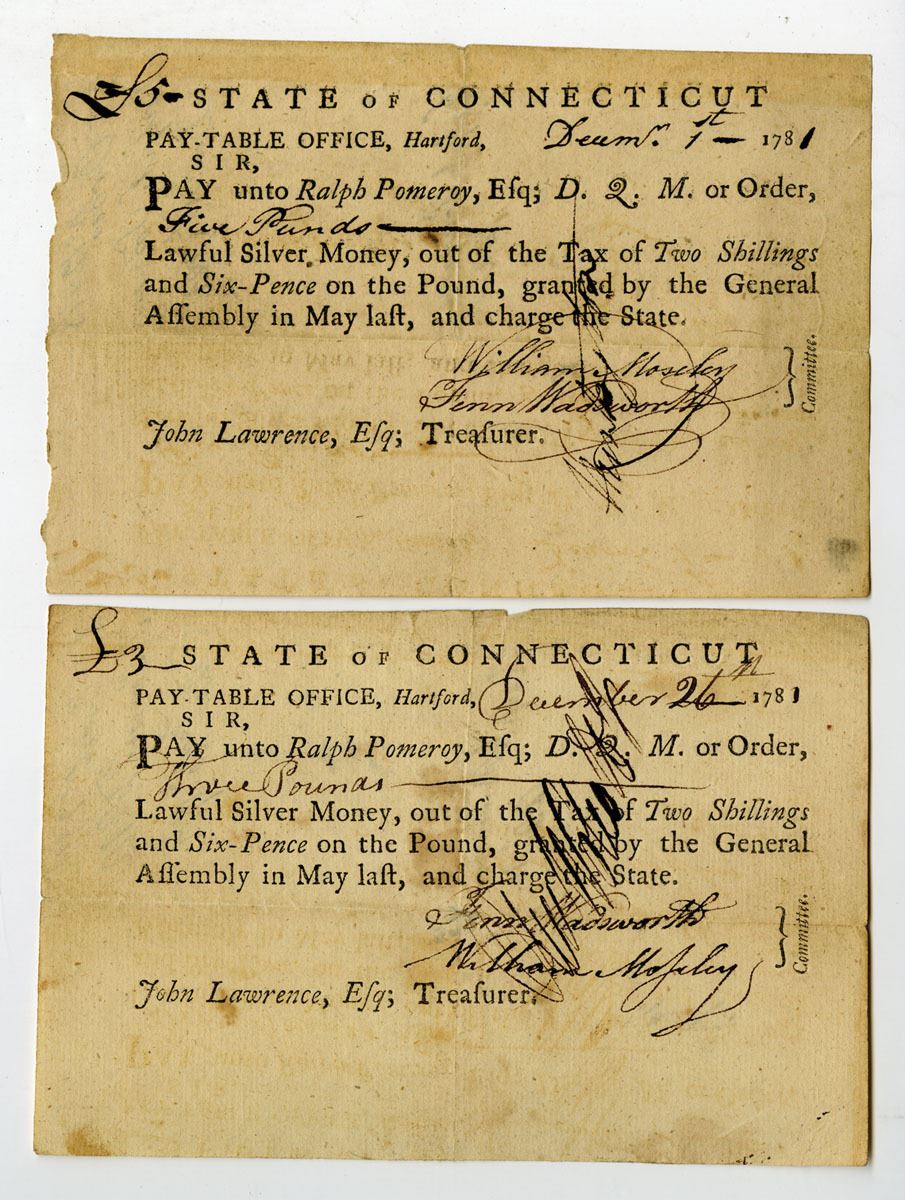 £5 - STATE OF CONNECTICUT
PAY-TABLE OFFICE, Hartford, Decemr. 1st — 1781
SIR,
PAY unto Ralph Pomeroy, Eſq; D. Q. M. or Order,
Five Punds —
Lawful Silver Money, out of the Tax of Two Shillings
and Six-Pence on the Pound, granted by the General
Aſſembly in May laſt, and charge the State.
William Moseley
Fenn Wadsworth
Committee.
John Lawrence, Eſq; Treaſurer.
£3 STATE OF CONNECTICUT
PAY-TABLE OFFICE, Hartford, December 26th — 1781
SIR,
PAY unto Ralph Pomeroy, Eſq; D. Q. M. or Order,
Three Pounds —
Lawful Silver Money, out of the Tax of Two Shillings
and Six-Pence on the Pound, granted by the General
Aſſembly in May laſt, and charge the State.
Fenn Wadsworth
William Moſeley
Committee.
John Lawrence, Eſq; Treaſurer.